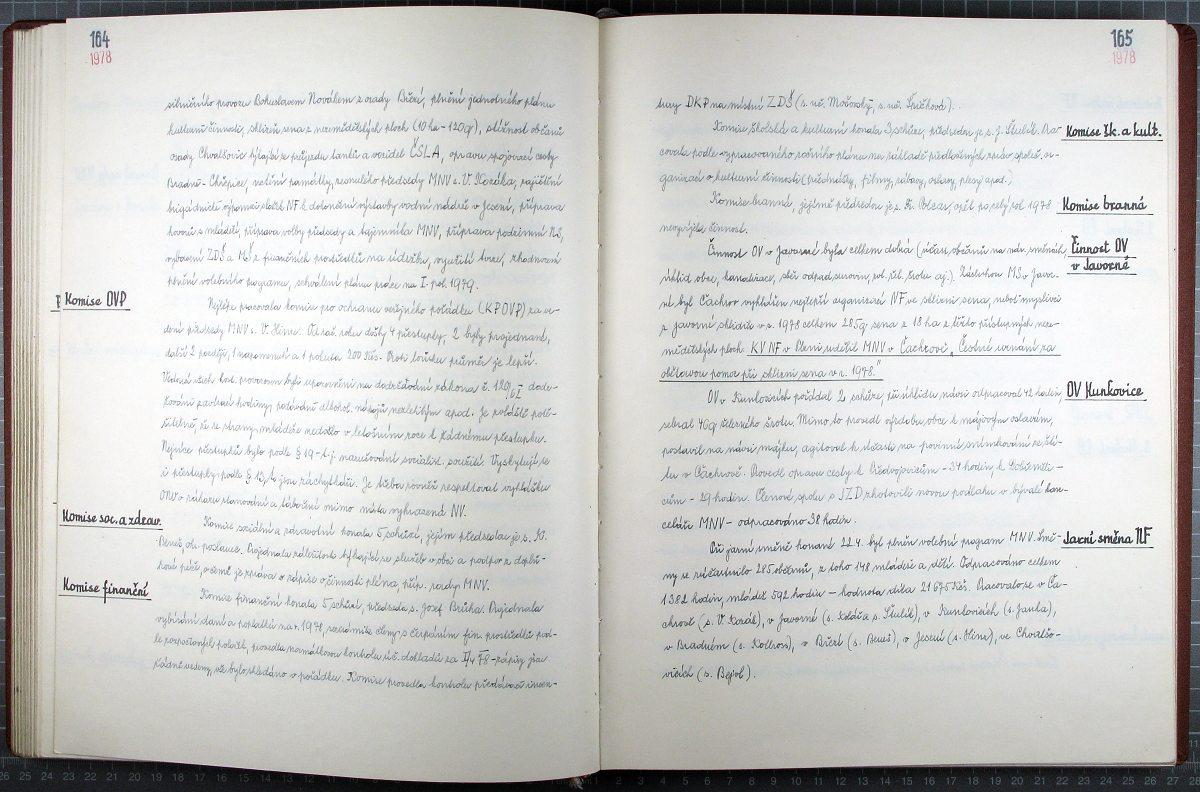 164
1978
silničního provozu Bohuslavem Novákem z osady Bížží, plnění jednotného plánu
kulturní činnosti, sklizeň sena z nezemědělských ploch (10 ha - 120 q), stížnost občanů
osady Chvalšovic týkající se průjezdu tanků a vozidel ČSLA, opravu spojovací cesty
Bradné - Chřepice, uctění památky zesnulého předsedy MNV s. V. Kozáka, zajištění
brigádnické výpomoci složek NF k dokončení výstavby vodní nádrže v Jesení, příprava
hovorů s mládeží, příprava volby předsedy a tajemníka MNV, příprava podzimní NS,
vybavení ZDŠ a MŠ z finančních prostředků na údržbu, využití dvou, zhodnocení
plnění volebního programu, schválení plánu práce na I. pol. 1979.
Komise OVP
Nejlépe pracovala komise pro ochranu veřejného pořádku (KPOVP) za ve-
dení předsedy MNV s. V. Hinze. V t. zv. roku došly 4 přestupky, 2 byly projednané,
další 2 později, 1 napomenutí a 1 pokuta 200 Kčs. Proti loňsku průměr je lepší.
Vedoucí všech host. provozoven byli upozorněni na dodržování zákona č. 120/62 dodr-
žování zavírací hodiny, podávání alkohol. nápojů nezletilým apod. Je zvláště potě-
šitelné, že ze strany mládeže nedošlo v letošním roce k žádnému přestupku.
Nejvíce přestupků bylo podle § 19 - t. j. narušování socialist. soužití. Vyskytují se
i přestupky podle § 13,
ONV o zákazu stanování a táboření mimo místa vyhrazená NV.
Komise soc. a zdrav.
Komise sociální a zdravotní konala 5 schůzí, jejím předsedou je s. K.
Beneš, ob. poslanec. Projednala záležitosti týkající se služeb v obci a podpor z doplň-
kové péče, o čemž je zpráva v zápise o činnosti pléna, příp. rady MNV.
Komise finanční
Komise finanční konala 5 schůzí, předseda s. Josef Brůha. Projednala
vybírání daní a poplatků na r. 1978, seznámila členy s čerpáním fin. prostředků pod-
le rozpočtových položek, provedla namátkovou kontrolu úč. dokladů za II/4 78 - zápisy jsou
řádně vedeny, vše bylo shledáno v pořádku. Komise provedla kontrolu předávací inven-
165
1978
tury DKP na místní ZDŠ (s. uč. Močovský, s. uč. Špičková).
Komise šk. a kult.
Komise školská a kulturní konala 3 schůze, předsedou je s. J. Štulík. Pra-
covala podle vypracovaného ročního plánu na základě předložených zpráv společ. or-
ganizací o kulturní činnosti (přednášky, filmy, zábavy, oslavy, plesy apod.)
Komise branná
Komise branná, jejímž předsedou je s. Fr. Polczar, opět po celý rok 1978
nevyvíjela činnost.
Činnost OV
v Javorné
Činnost OV v Javorné byla celkem dobrá (účast občanů na ndr. směnách,
úklid obce, kanalizace, sběr odpad. surovin, pol. škol. stolu aj.). Zásluhou MS v Javor-
né byl Čachrov vyhlášen nejlepší organizací NF ve sklizni sena, neboť myslivci
z Javorné sklidili v r. 1978 celkem 285 q sena z 18 ha z těžko přístupných neze-
mědělských ploch. KV NF v Plzni udělil MNV v Čachrově „Čestné uznání za
obětavou pomoc při sklizni sena v r. 1978."
OV Kunkovice
OV v Kunkovicích pořádal 2 schůze, při úklidu návsi odpracoval 42 hodin,
sebral 40 q železného šrotu. Mimo to provedl výzdobu obce k májovým oslavám,
postavil na návsi májku, agitoval k účasti na povinné snímkování ze ští-
tu v Čachrově. Provedl opravu cesty k Předvojovicům - 34 hodin, k Dobřemili-
cům - 29 hodin. Členové spolu s JZD zhotovili novou podlahu v bývalé kan-
celáři MNV - odpracováno 38 hodin.
Jarní směna NF
Při jarní směně konané 22.4. byl plněn volební program MNV. Smě-
ny se zúčastnilo 285 občanů, z toho 148 mládeže a dětí. Odpracováno celkem
1382 hodin, mládež 592 hodin - hodnota díla 21 675 Kčs. Pracovalo se v Ča-
chrově (s. V. Kozák), v Javorné (s. Kolář a s. Štulík), v Kunkovicích (s. Jaula),
v Bradném (s. Kollros), v Bížží (s. Beneš), v Jesení (s. Hinz), ve Chvalšo-
vicích (s. Bejvl).